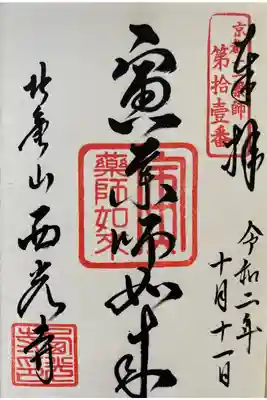 奉拝
京都十二薬師
第拾壹番
令和二年
十月十一日
寅薬師如来
薬師如来
西光寺